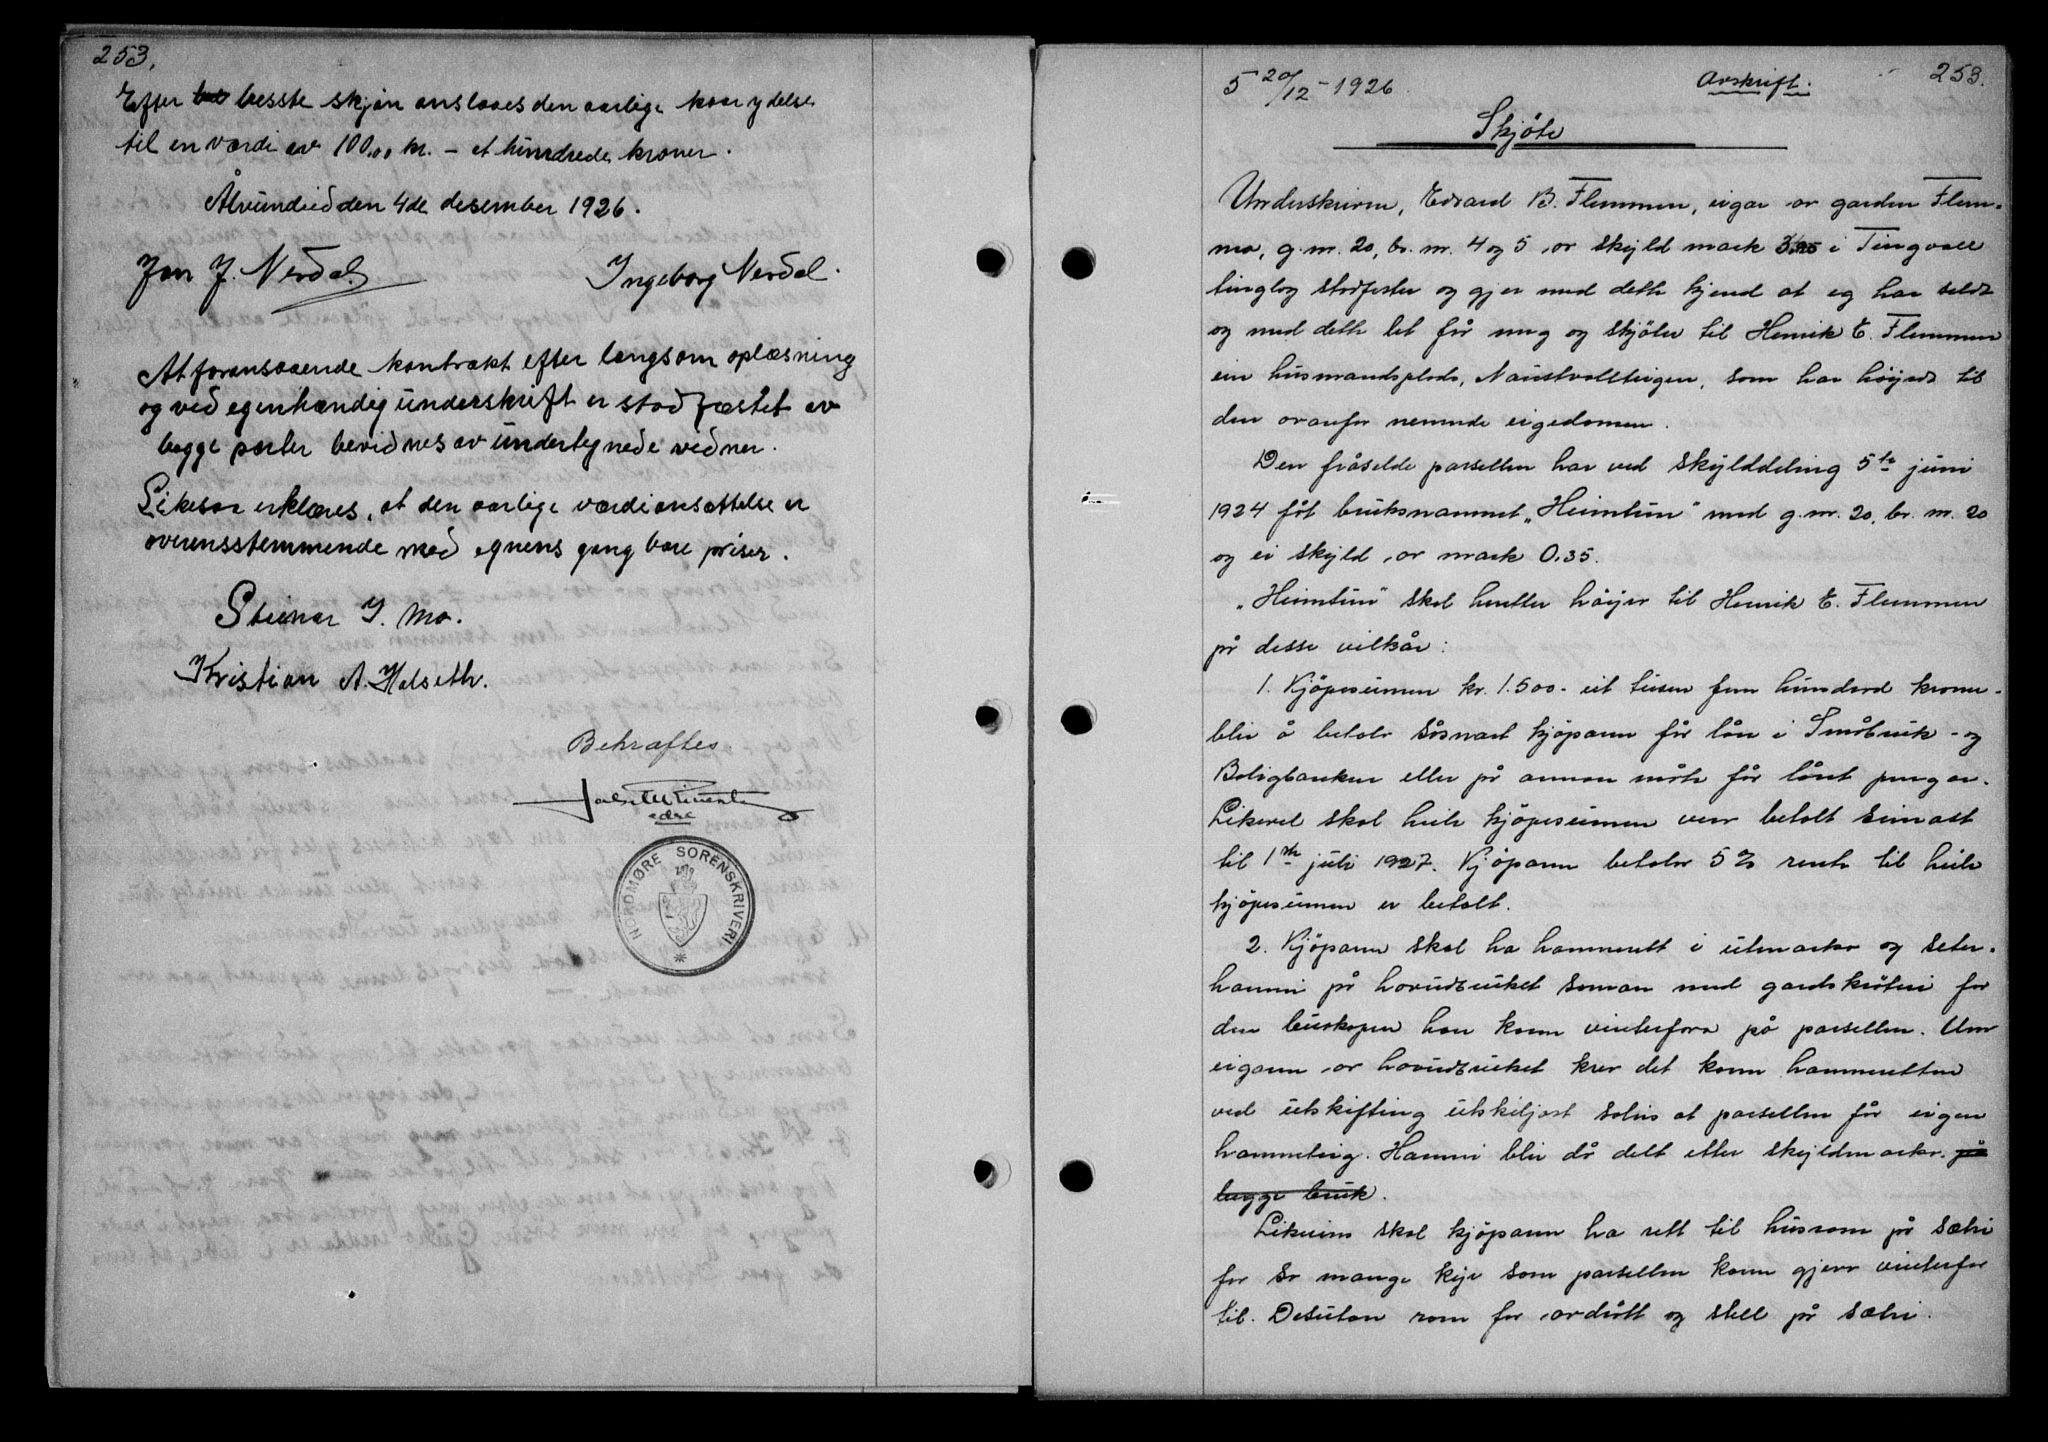 253.
Efter b̶e̶t̶ besste skjøn anslaaes den aarlige kaarydelse
til en værdi av 100,00 kr. – et hundrede kroner.
Ålvundeid den 4de desember 1926.
Jon J. Nerdal Ingeborg Nerdal.
At foranstaaende kontrakt efter langsom oplæsning
og ved egenhændig underskrift er stadfæstet av
begge parter bevidnes av undertegnede vedner.
Likesaa erklæres, at den aarlige værdiansættelse er
overensstemmende med egnens gangbare priser.
Steinar J. Mo.
Kristian A. Halseth.
Bekræftes
edre
NORDMØRE SORENSKRIVERI
5 20/12 - 1926. Avskrift. 253.
Skjöte
Underskriven, Edvard B. Flemmen, eigar av garden Flem-
ma, g.nr. 20, br. nr. 4 og 5, av skyld mark 3,95 i Tingvoll
tinglag stadfester og gjer med dette kjend at eg har seldt
og med dette let frå meg og skjöter til Henrik E. Flemmen
ein husmandsplads, Naustvollteigen, som har höyrd til
den ovanfor nemnde eigedomen.
Den fråselde parsellen har ved skylddeling 5te juni
1924 fåt bruksnammet „Heimtun" med g.nr. 20, br. nr. 20
og ei skyld av mark 0.35.
„Heimtun" skal heretter höyre til Henrik E. Flemmen
på desse vilkår:
1. Kjöpesummen kr. 1.500.- eit tusen fem hundrad kroner -
blir å betala såsnart kjöparen får lån i Småbruk- og
Boligbanken eller på annan måte får lånt pengar.
Likevel skal heile kjöpesummen vera betalt seinast
til 1ste juli 1927. Kjöparen betalar 5 % rente til heile
kjöpesummen er betalt.
2. Kjöparen skal ha hamnerett i utmarka og seter-
hamni på hovudbruket saman med gardskröteri for
den buskapen han kann vinterfora på parsellen. Um
eigaren av hovudbruket krev det kann hamneretten
ved utskifting utskiljast soleis at parsellen får eigen
hamneteig. Hamni blir då delt etter skyldmarka. på
begge bruk.
Likeeins skal kjöparen ha rett til husrom på sætri
for så mange kyr som parsellen kann gjera vinterfor
til. Desutan rom for avdrått og stell på sætri.